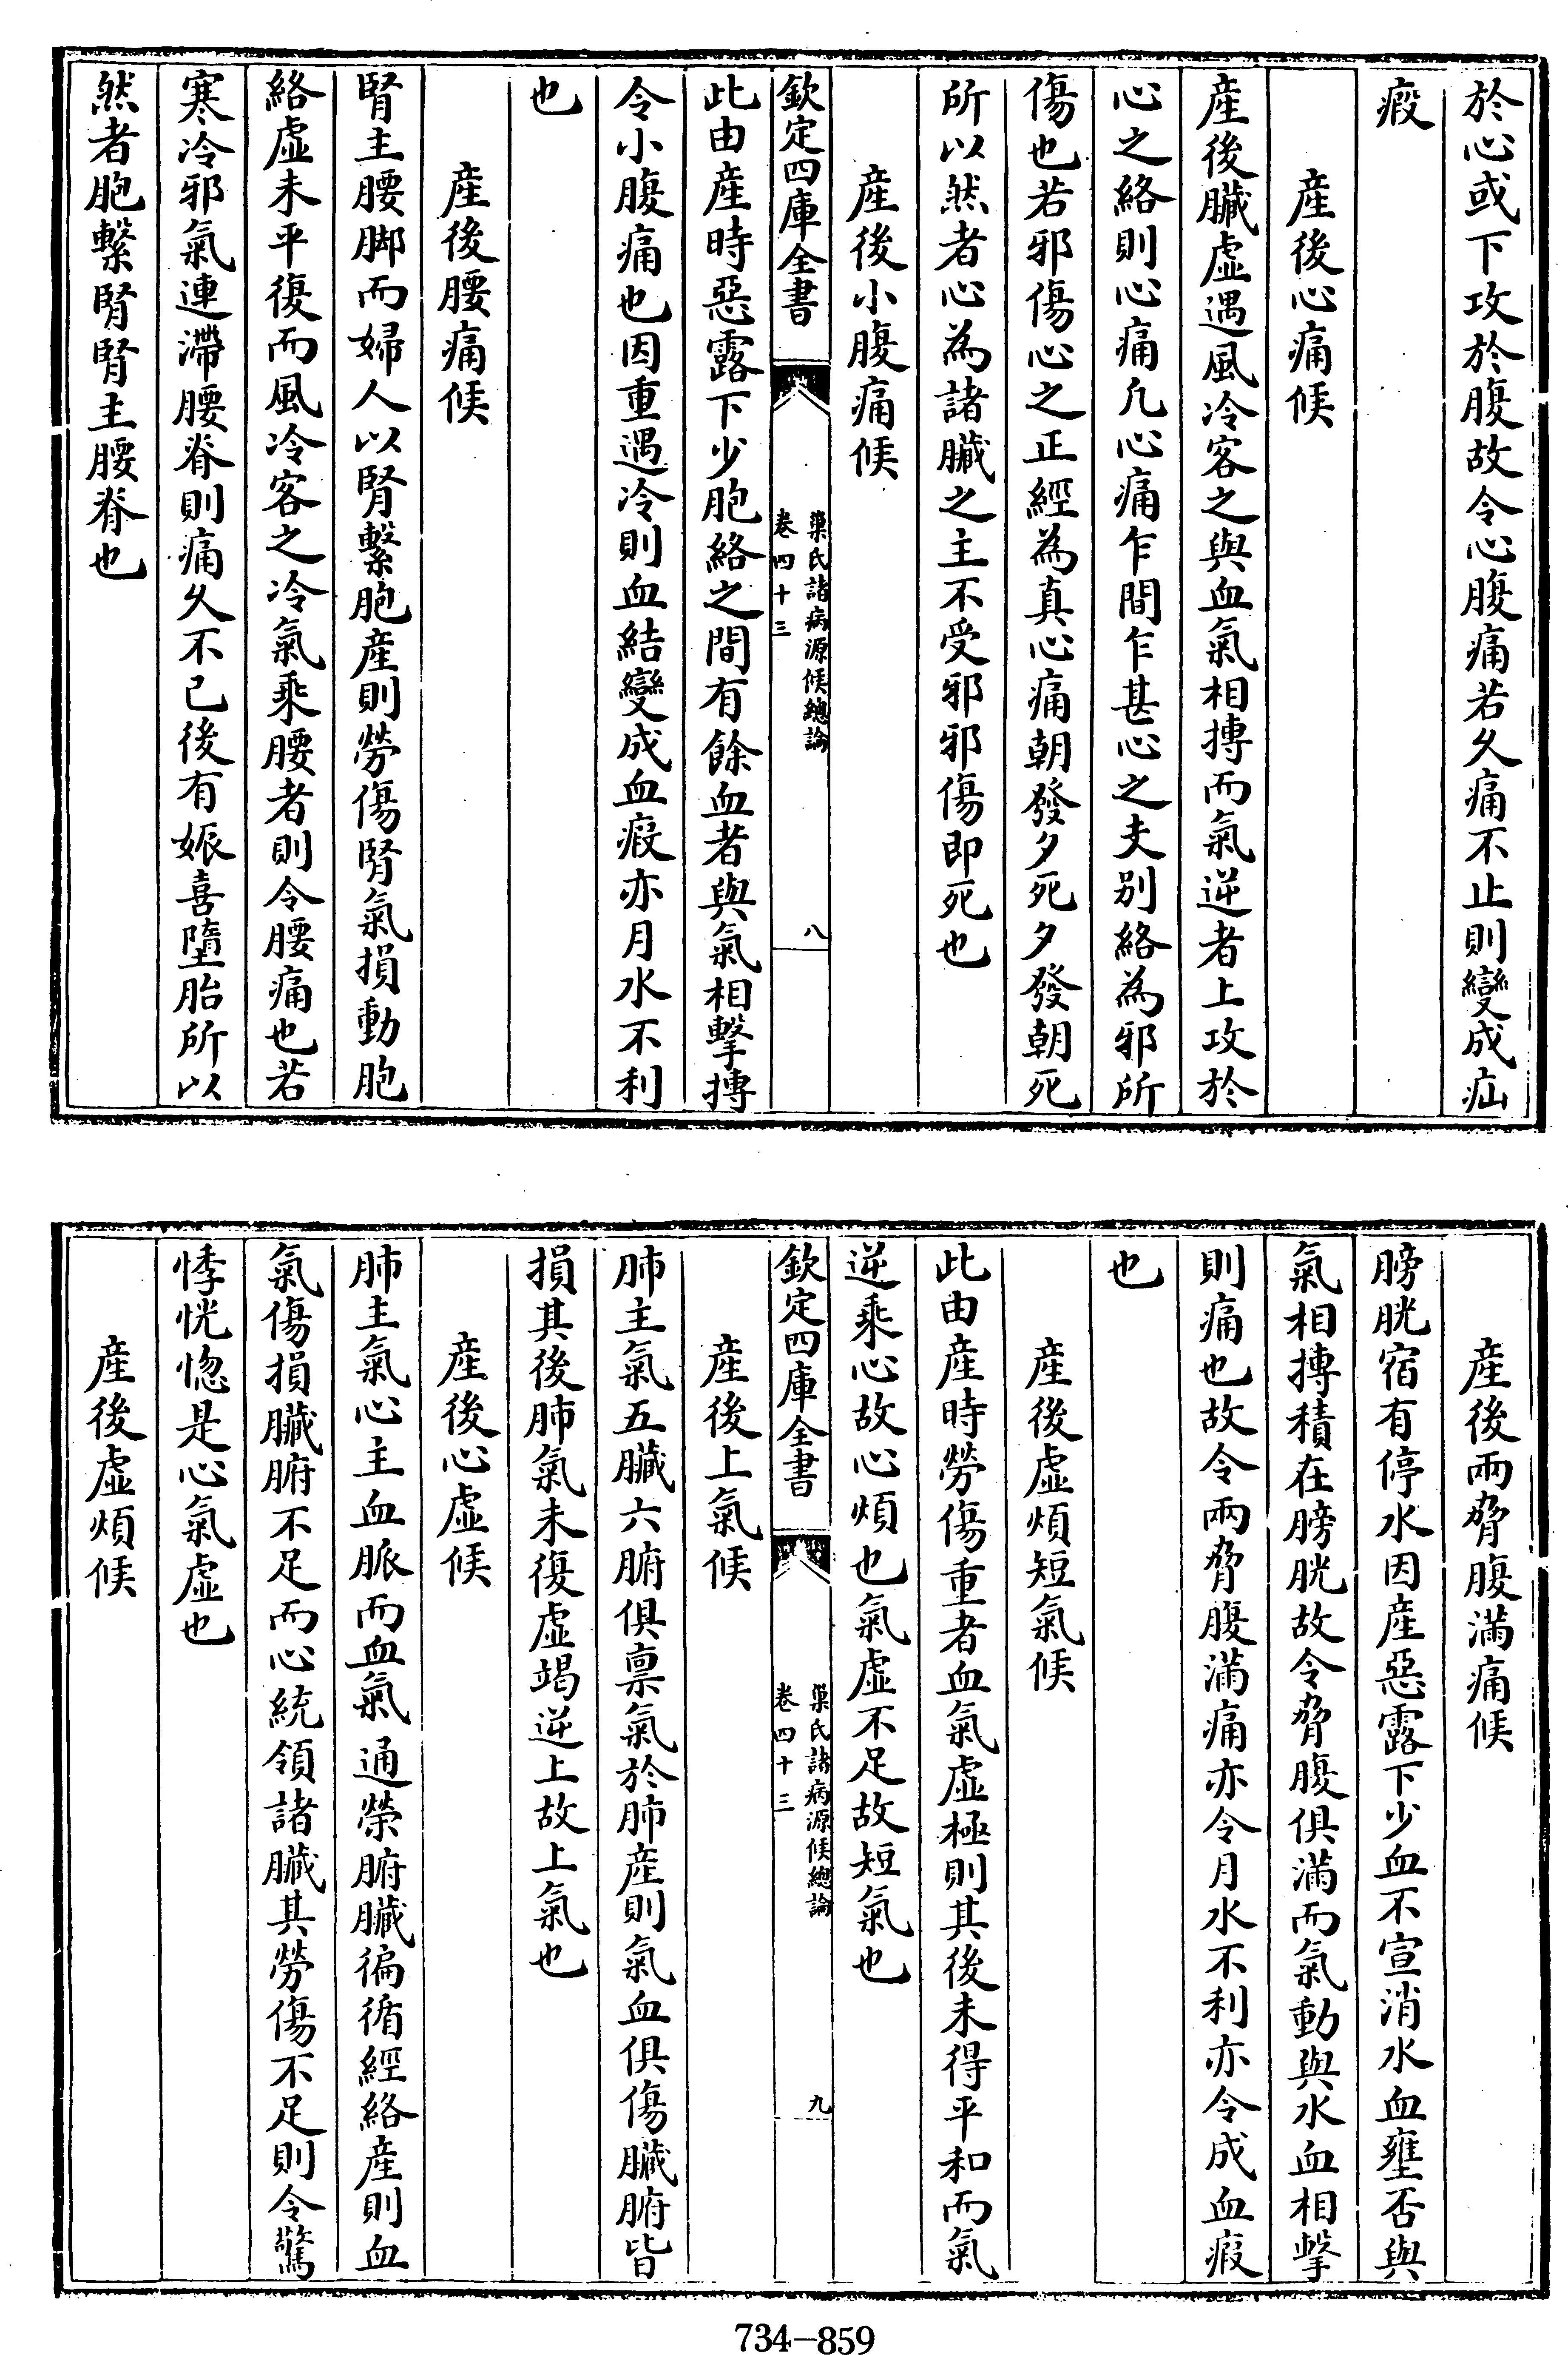 於心或下攻於腹故令心腹痛若久痛不止則變成疝
瘕
産後心痛候
産後臟虛遇風冷客之與血氣相搏而氣逆者上攻於
心之絡則心痛凡心痛乍間乍甚心之支別絡為邪所
傷也若邪傷心之正經為真心痛朝發夕死夕發朝死
所以然者心為諸臟之主不受邪邪傷即死也
産後小腹痛候
欽定四庫全書
巢氏諸病源候總論
卷四十三
八
此由産時惡露下少胞絡之間有餘血者與氣相擊搏
令小腹痛也因重遇冷則血結變成血瘕亦月水不利
也
産後腰痛候
腎主腰脚而婦人以腎繫胞産則勞傷腎氣損動胞
絡虛未平復而風冷客之冷氣乘腰者則令腰痛也若
寒冷邪氣連滯腰脊則痛久不已後有娠喜墮胎所以
然者胞繫腎腎主腰脊也
産後兩脅腹滿痛候
膀胱宿有停水因産惡露下少血不宣消水血壅否與
氣相搏積在膀胱故令脅腹俱滿而氣動與水血相擊
則痛也故令兩脅腹滿痛亦令月水不利亦令成血瘕
也
産後虛煩短氣候
此由産時勞傷重者血氣虛極則其後未得平和而氣
逆乘心故心煩也氣虛不足故短氣也
欽定四庫全書
巢氏諸病源候總論
卷四十三
九
産後上氣候
肺主氣五臟六腑俱禀氣於肺産則氣血俱傷臟腑皆
損其後肺氣未復虛竭逆上故上氣也
産後心虛候
肺主氣心主血脈而血氣通榮腑臟徧循經絡産則血
氣傷損臟腑不足而心統領諸臟其勞傷不足則令驚
悸恍惚是心氣虛也
産後虛煩候
734-859